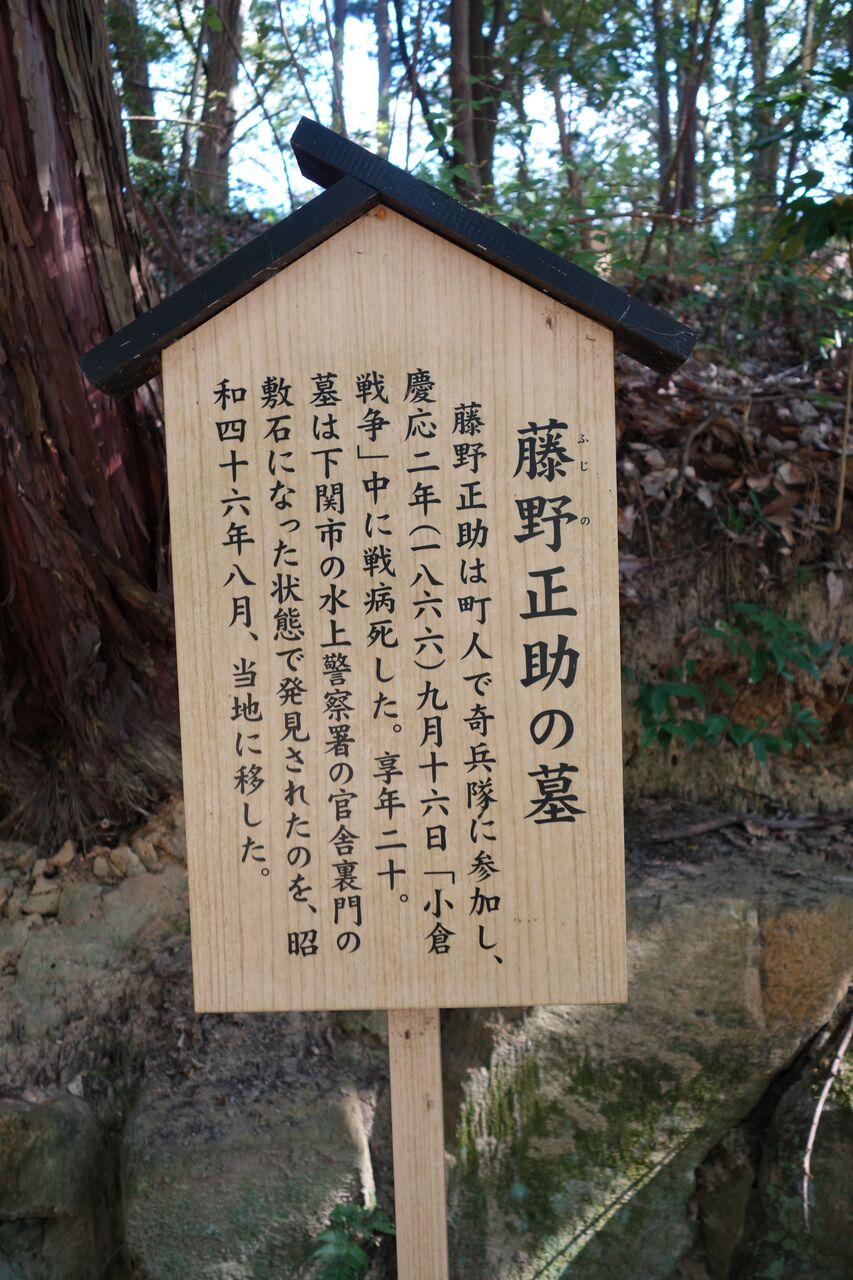 藤野正助の墓
ふじの
藤野正助は町人で奇兵隊に参加し、
慶応二年(一八六六)九月十六日「小倉
戦争」中に戦病死した。享年二十。
墓は下関市の水上警察署の官舎裏門の
敷石になった状態で発見されたのを、昭
和四十六年八月、当地に移した。